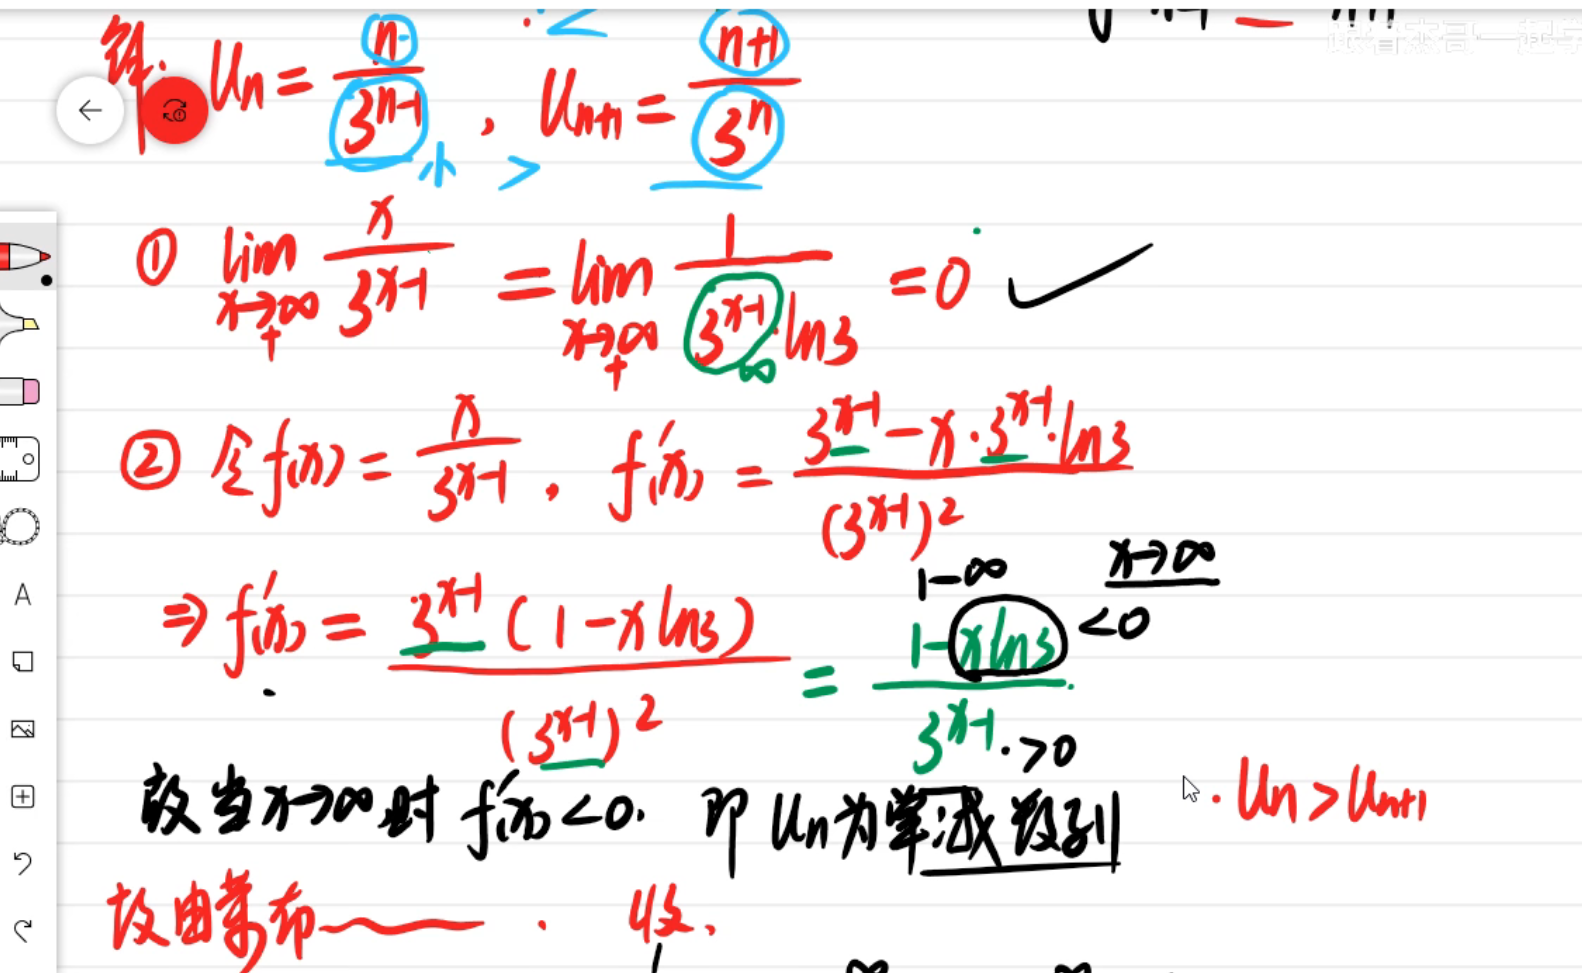 跟着杰哥一起学
解: Un = n/3^(n-1) , Un+1 = (n+1)/3^n
小 >
① lim x→+∞ x/3^(x-1) = lim x→+∞ 1/(3^(x-1)·ln3) = 0 ✓
∞
② 令f(x) = x/3^(x-1) , f'(x) = (3^(x-1) - x·3^(x-1)·ln3)/(3^(x-1))^2
1-∞ x→∞
⇒ f'(x) = 3^(x-1)(1-xln3)/(3^(x-1))^2 = (1-xln3)/3^(x-1) <0
>0
故当x→∞时 f'(x)<0. 即 Un为单减数列 . Un>Un+1
故由莱布 . 收.